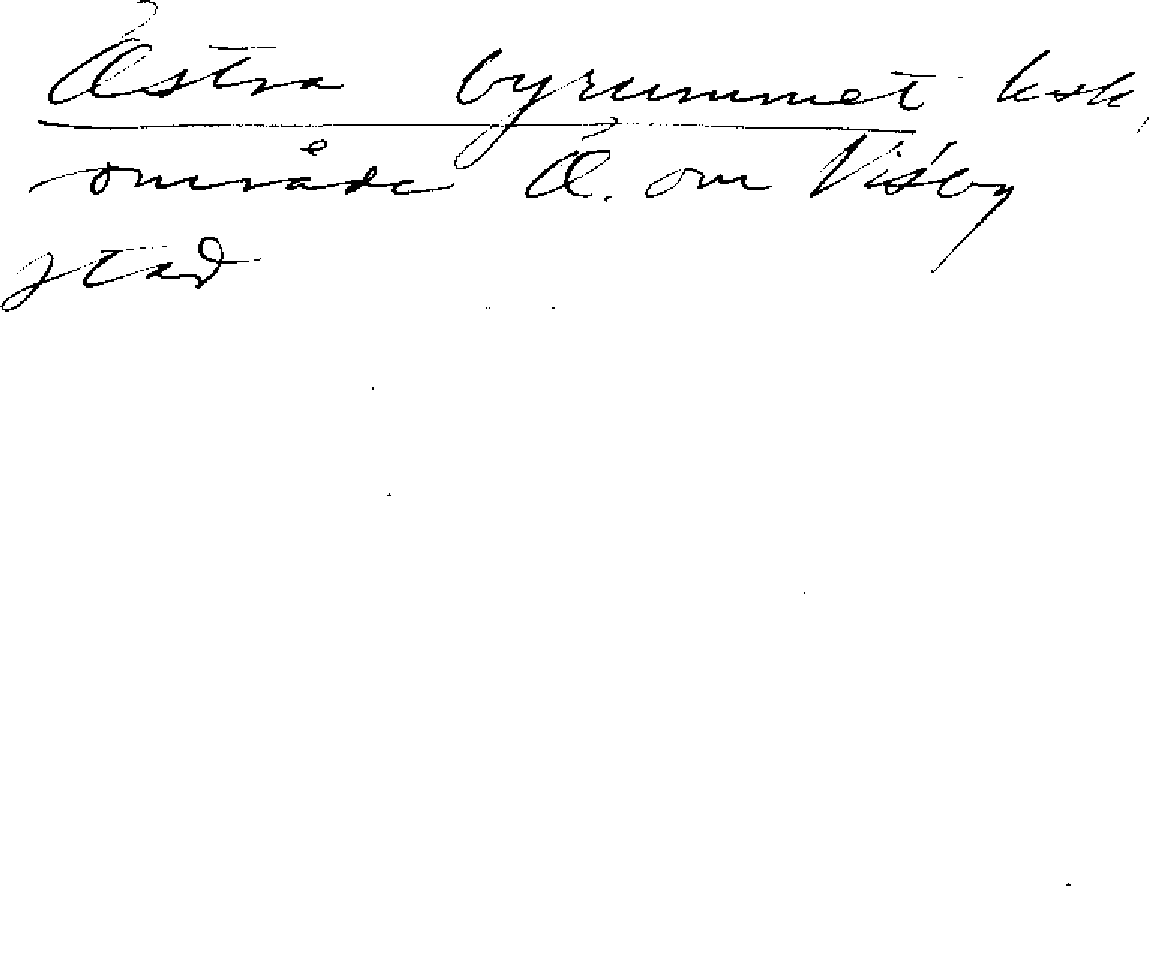 Östra byrummet ksk,
område Ö. om Visby
stad